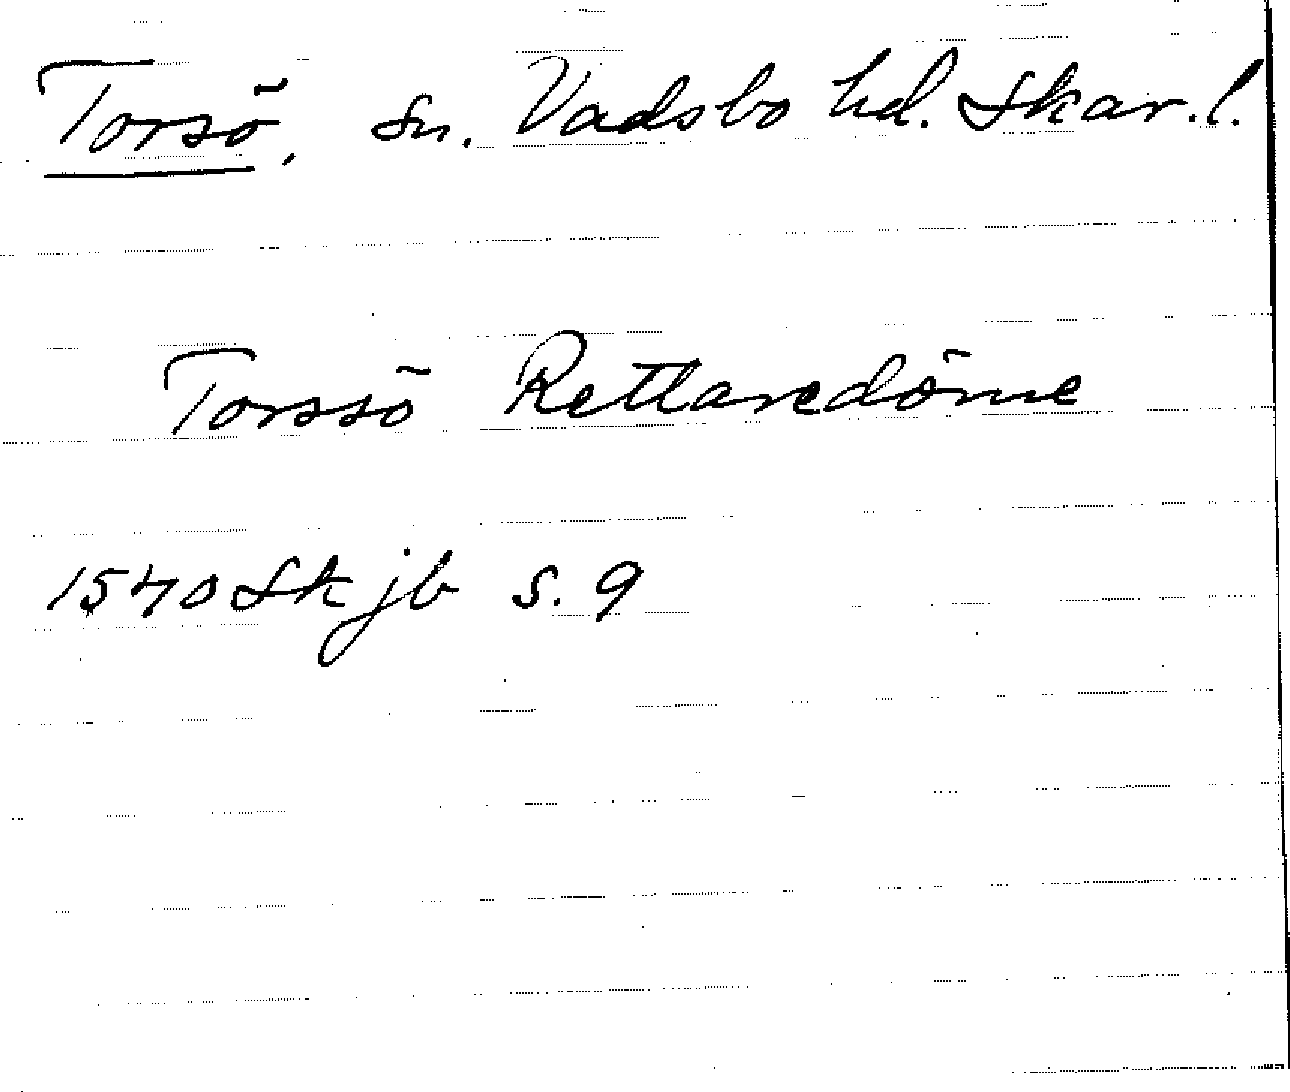 Torsö, sn. Vadsbo hd. Skar.l.
Torssö Rettaredöme
1540 Sk jb s. 9